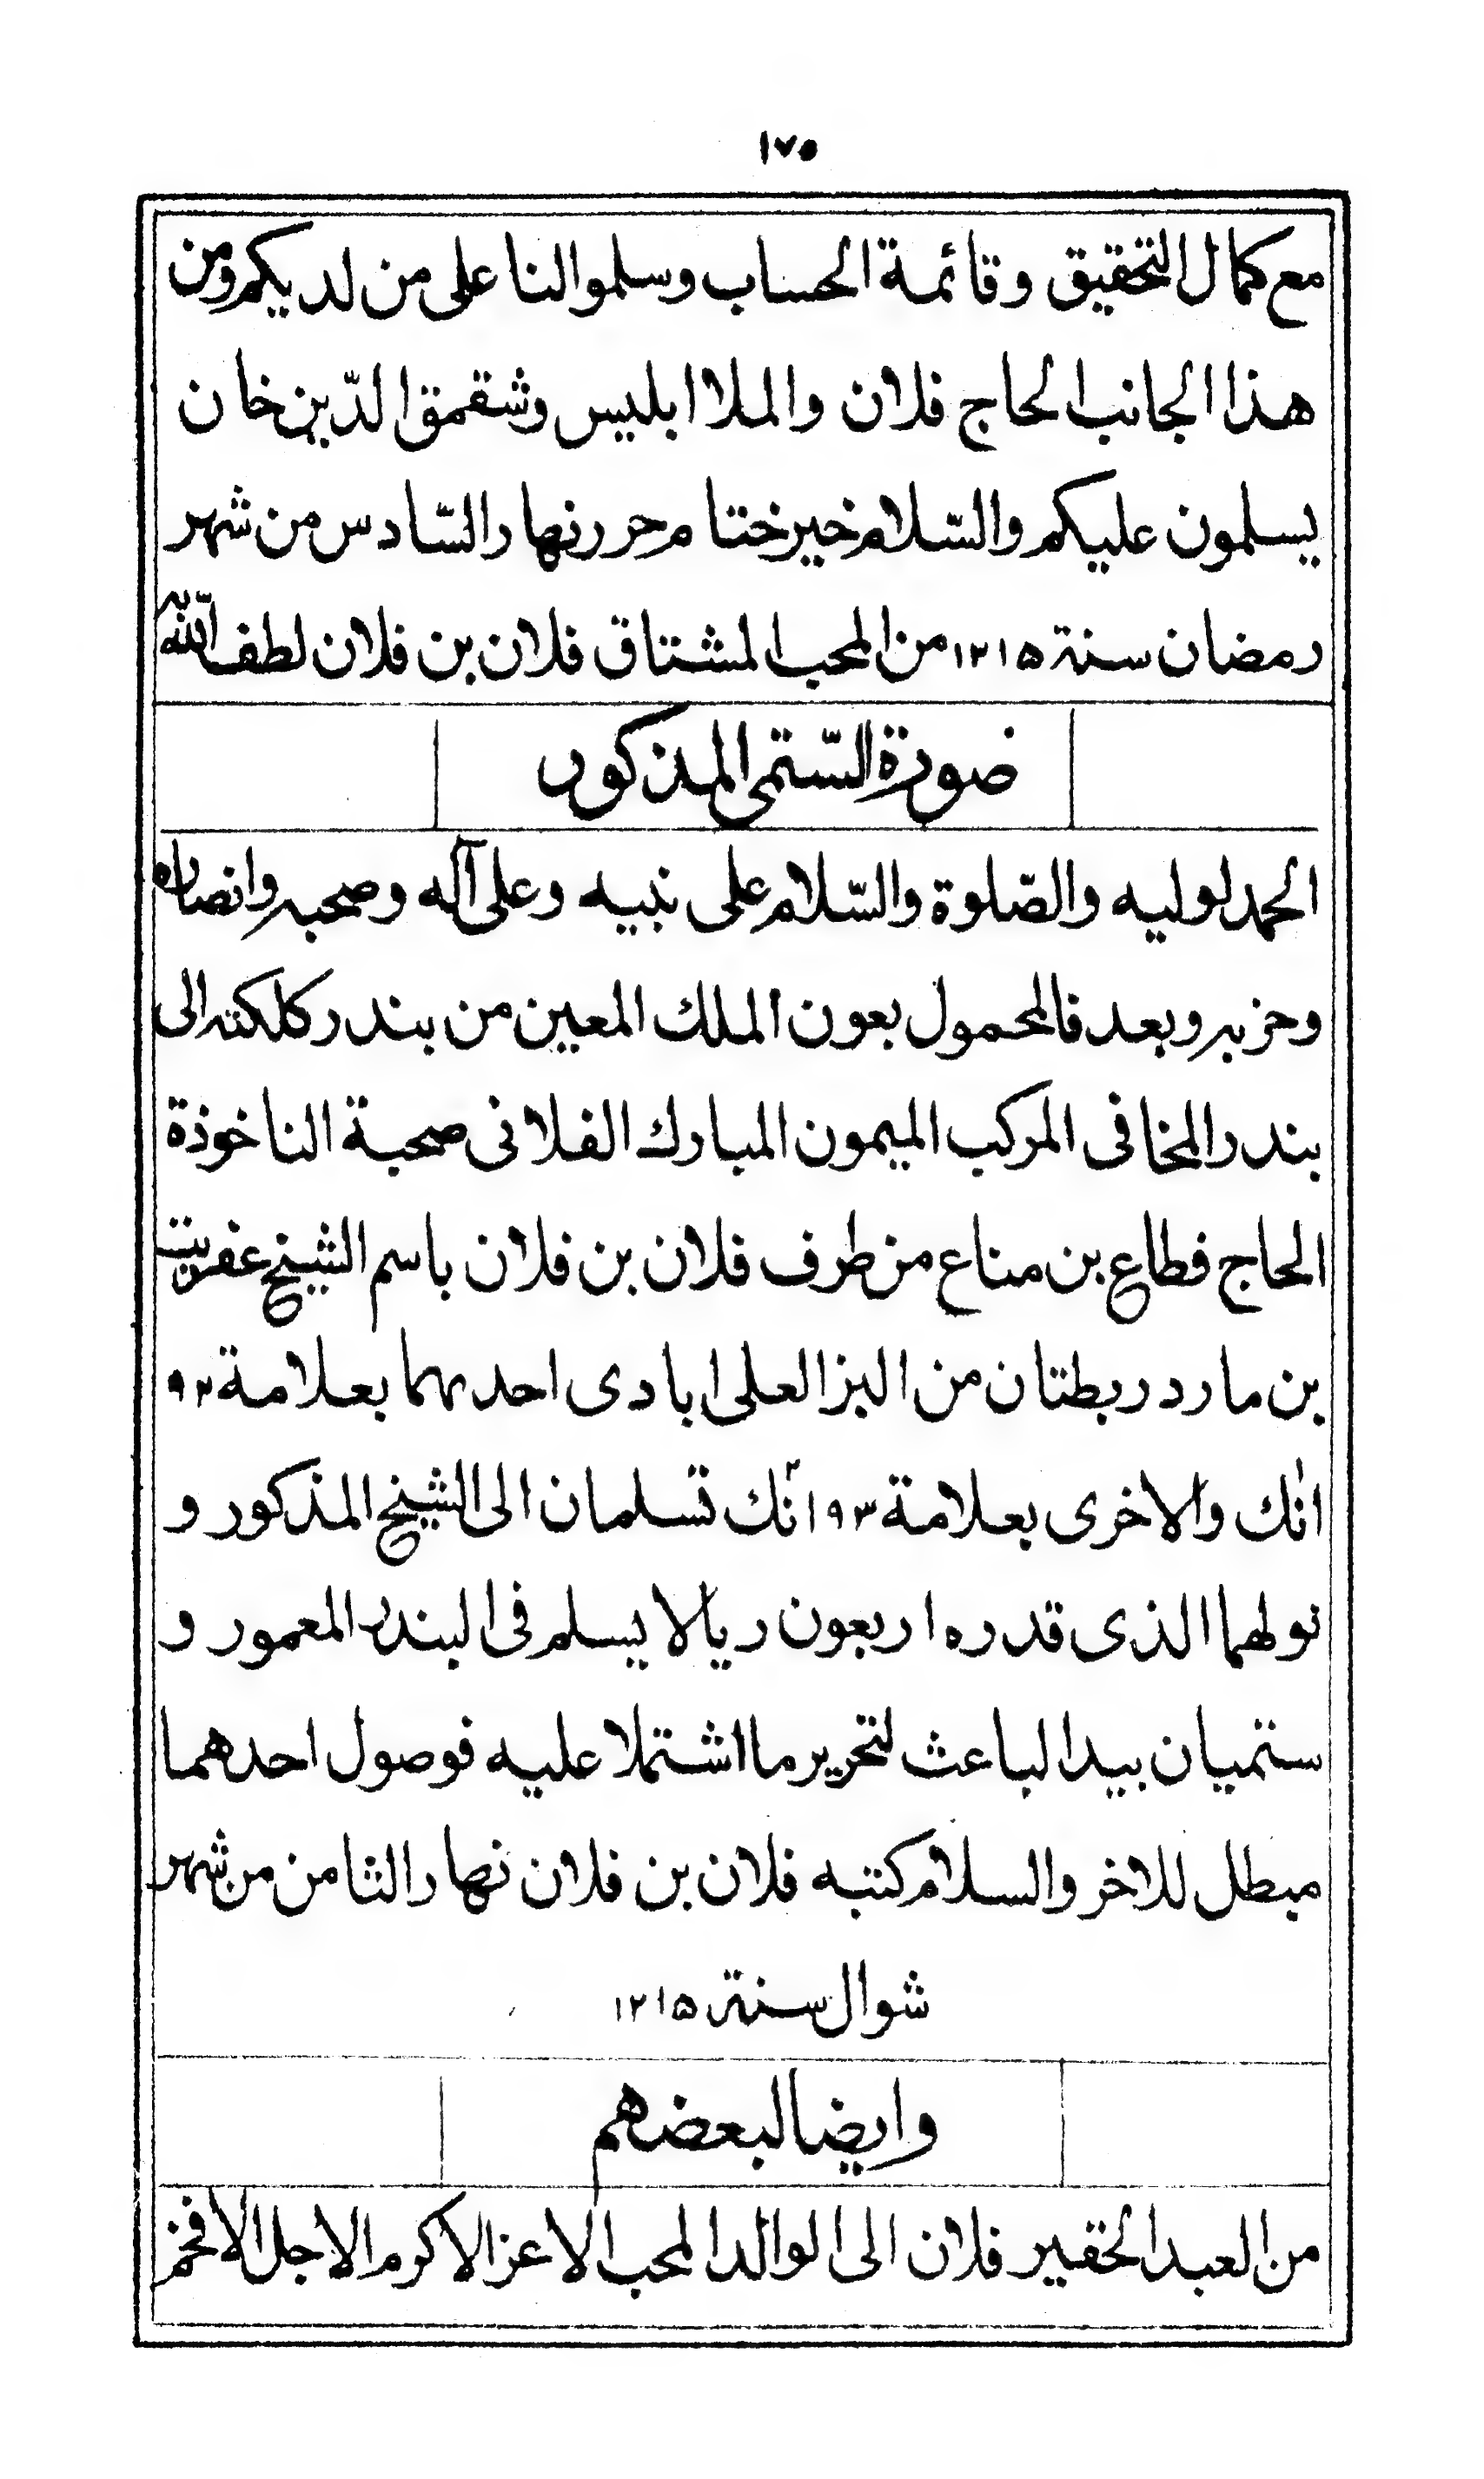 ١٧٥
مع كمال التحقيق وقائمة الحساب وسلموا لنا على من لديكم ومن
هذا الجانب الحاج فلان والملا ابليس وشقمق الدّين خان
يسلمون عليكم والسّلام خير ختام حرر نهار السّادس من شهر
رمضان سنة ١٢١٥ من المحب المشتاق فلان بن فلان لطف اللّه به
صورة السّتمى المذكور
الحمد لوليه والصّلوة والسّلام على نبيه وعلى آله وصحبه وانصاره
وحزبه وبعد فالمحمول بعون الملك المعين من بندر كلكته الى
بندر المخا فى المركب الميمون المبارك الفلانى صحبة الناخوذة
الحاج قطاع بن مناع من طرف فلان بن فلان باسم الشيخ عفريت
بن مارد ربطتان من البز العلى ابادى احدىهما بعلامة ٩٢
انك والاخرى بعلامة ٩٣ انّك تسلمان الى الشيخ المذكور و
نولهما الذى قدره اربعون ريالا يسلم فى البندر المعمور و
ستميان بيد الباعث لتحرير ما اشتملا عليه فوصول احدهما
مبطل للاخر والسلام كتبه فلان بن فلان نهار الثامن من شهر
شوال سنة ١٢١٥
وايضا لبعضهم
من العبد الحقير فلان الى الوالد المحب الاعز الاكرم الاجل الافخم